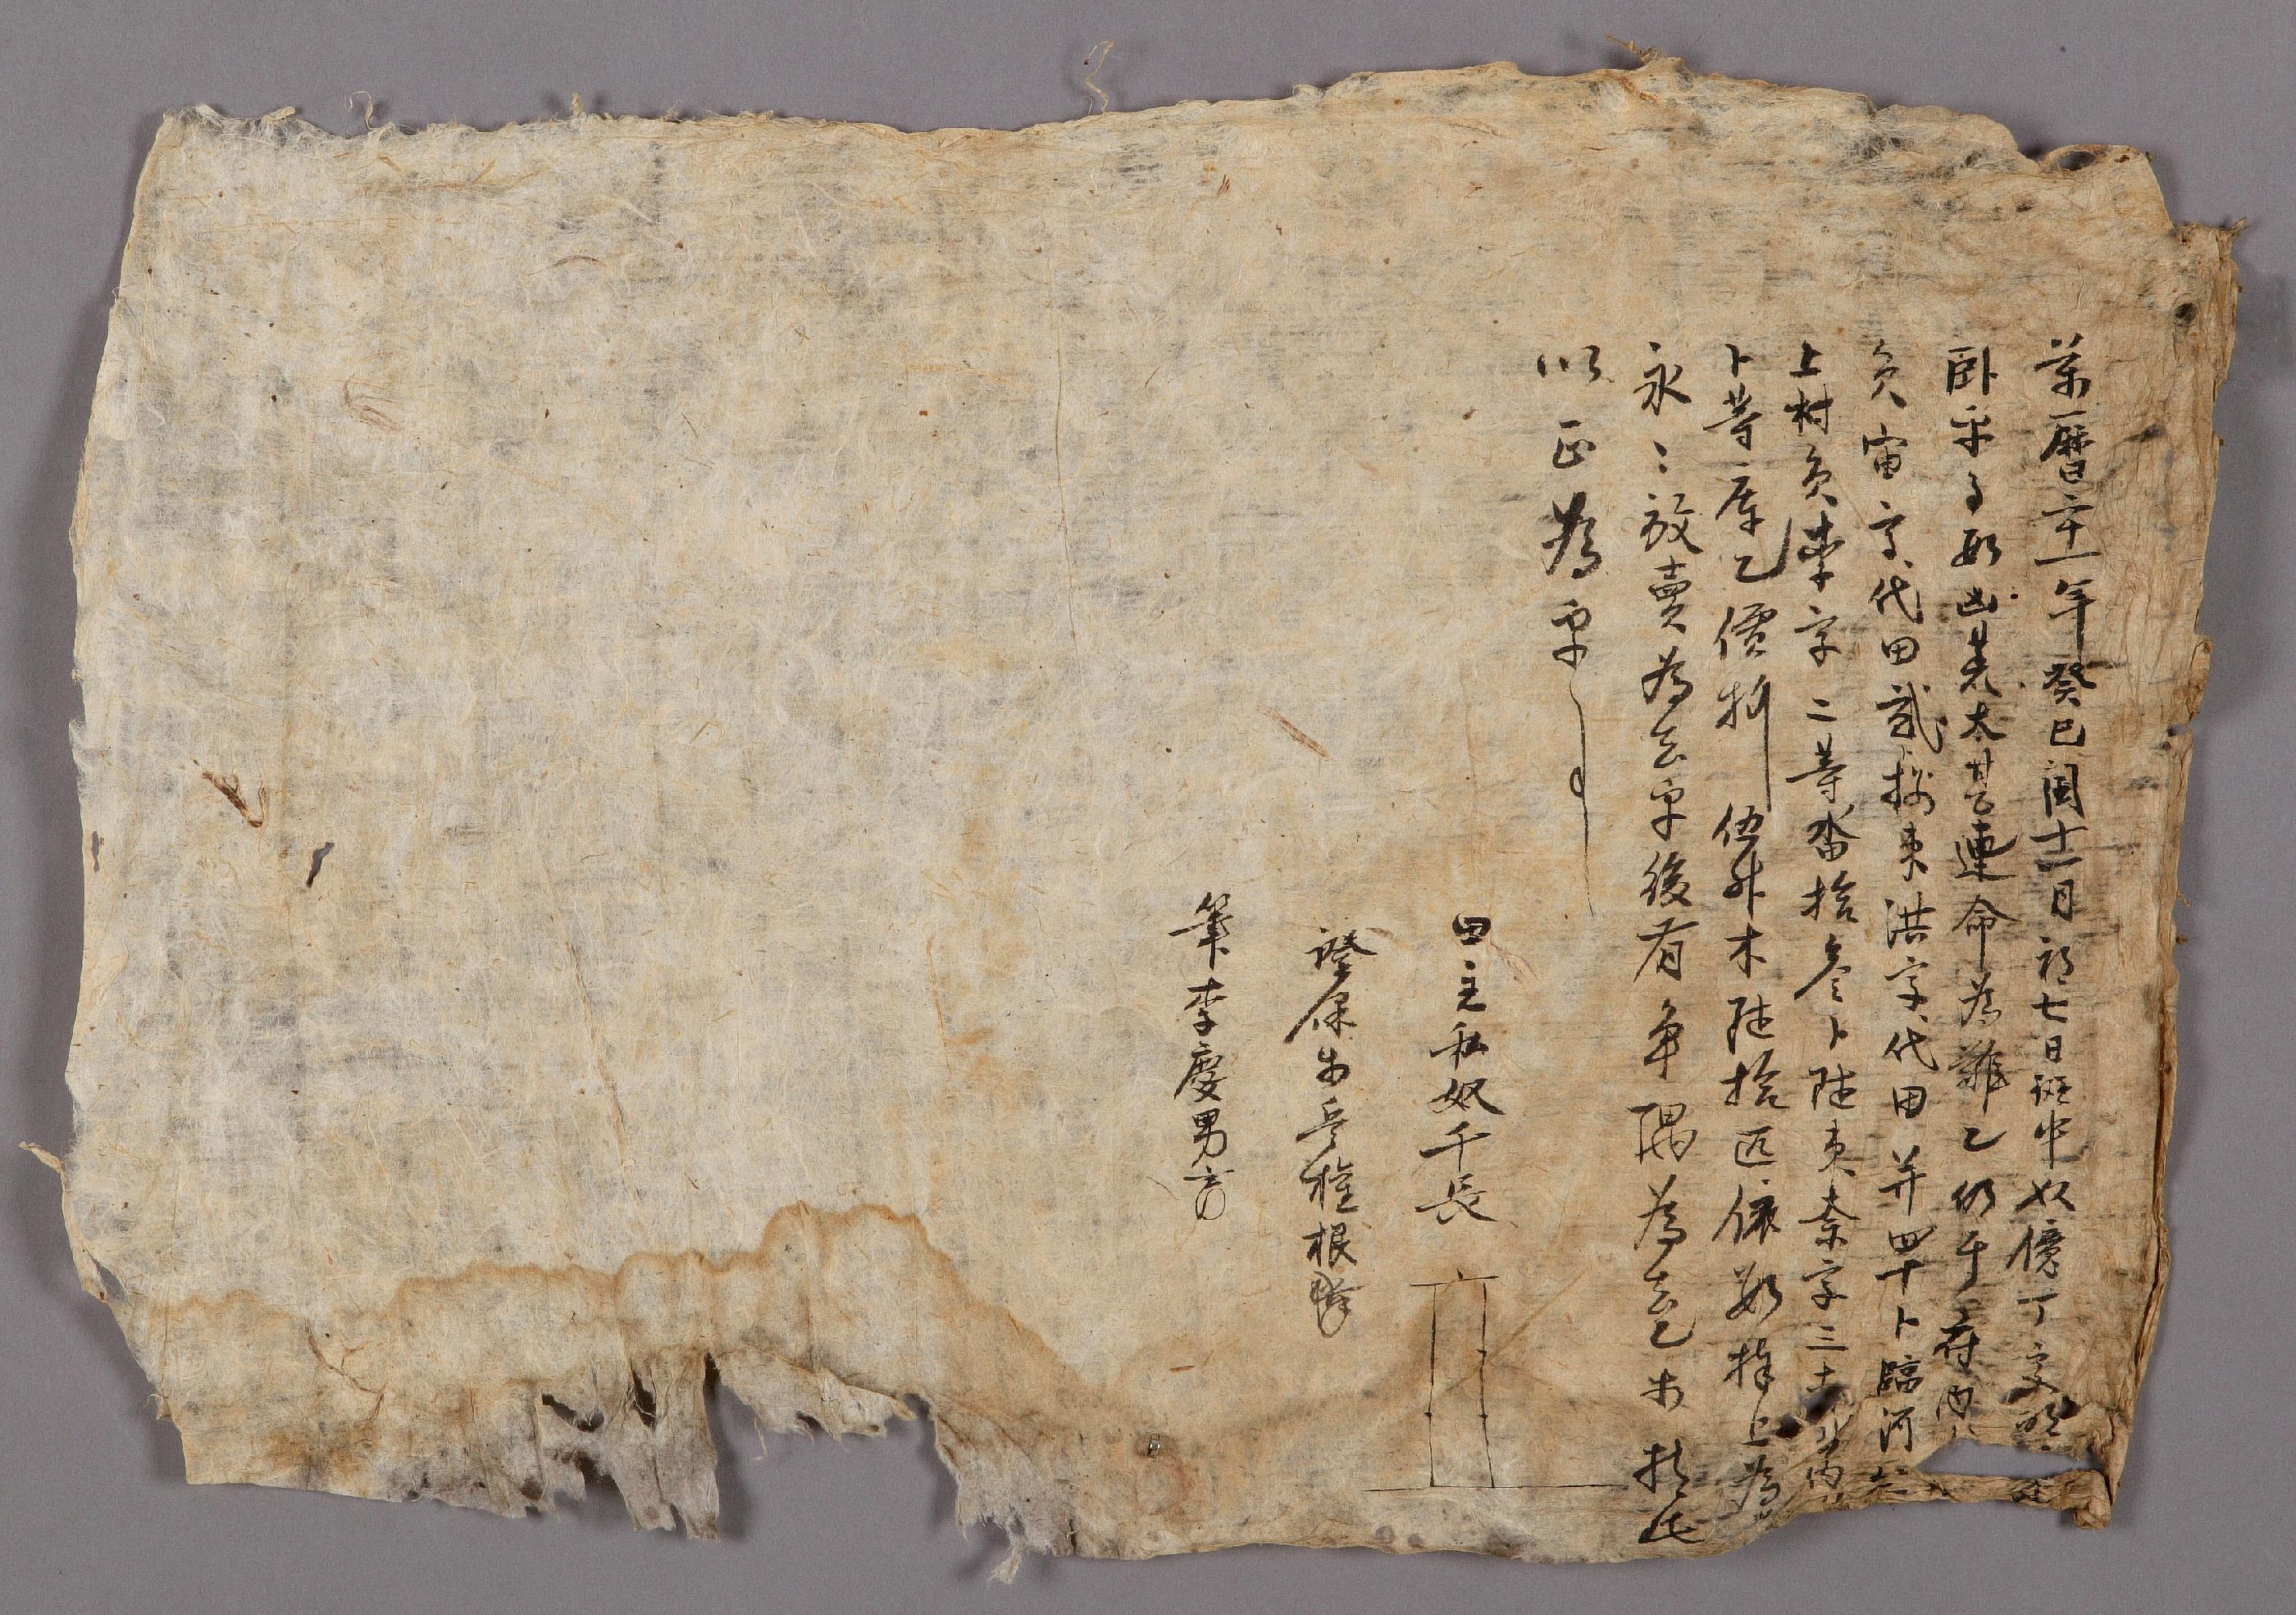 萬曆二十一年癸巳閏十一月初七日班中奴億丁字明
臥乎事段凶荒太甚連命為難乙仍于府內
員宙字代田貳拾束洪字代田并四十卜臨河
上村員李字二等畓拾叁卜陸束柰字三
卜等庫乙價折伍升木陸拾匹依數捧上為
永〻放賣為去乎後有爭隅為去乙等持此
以正為乎
田主私奴千長
證保步兵權根
筆李慶男